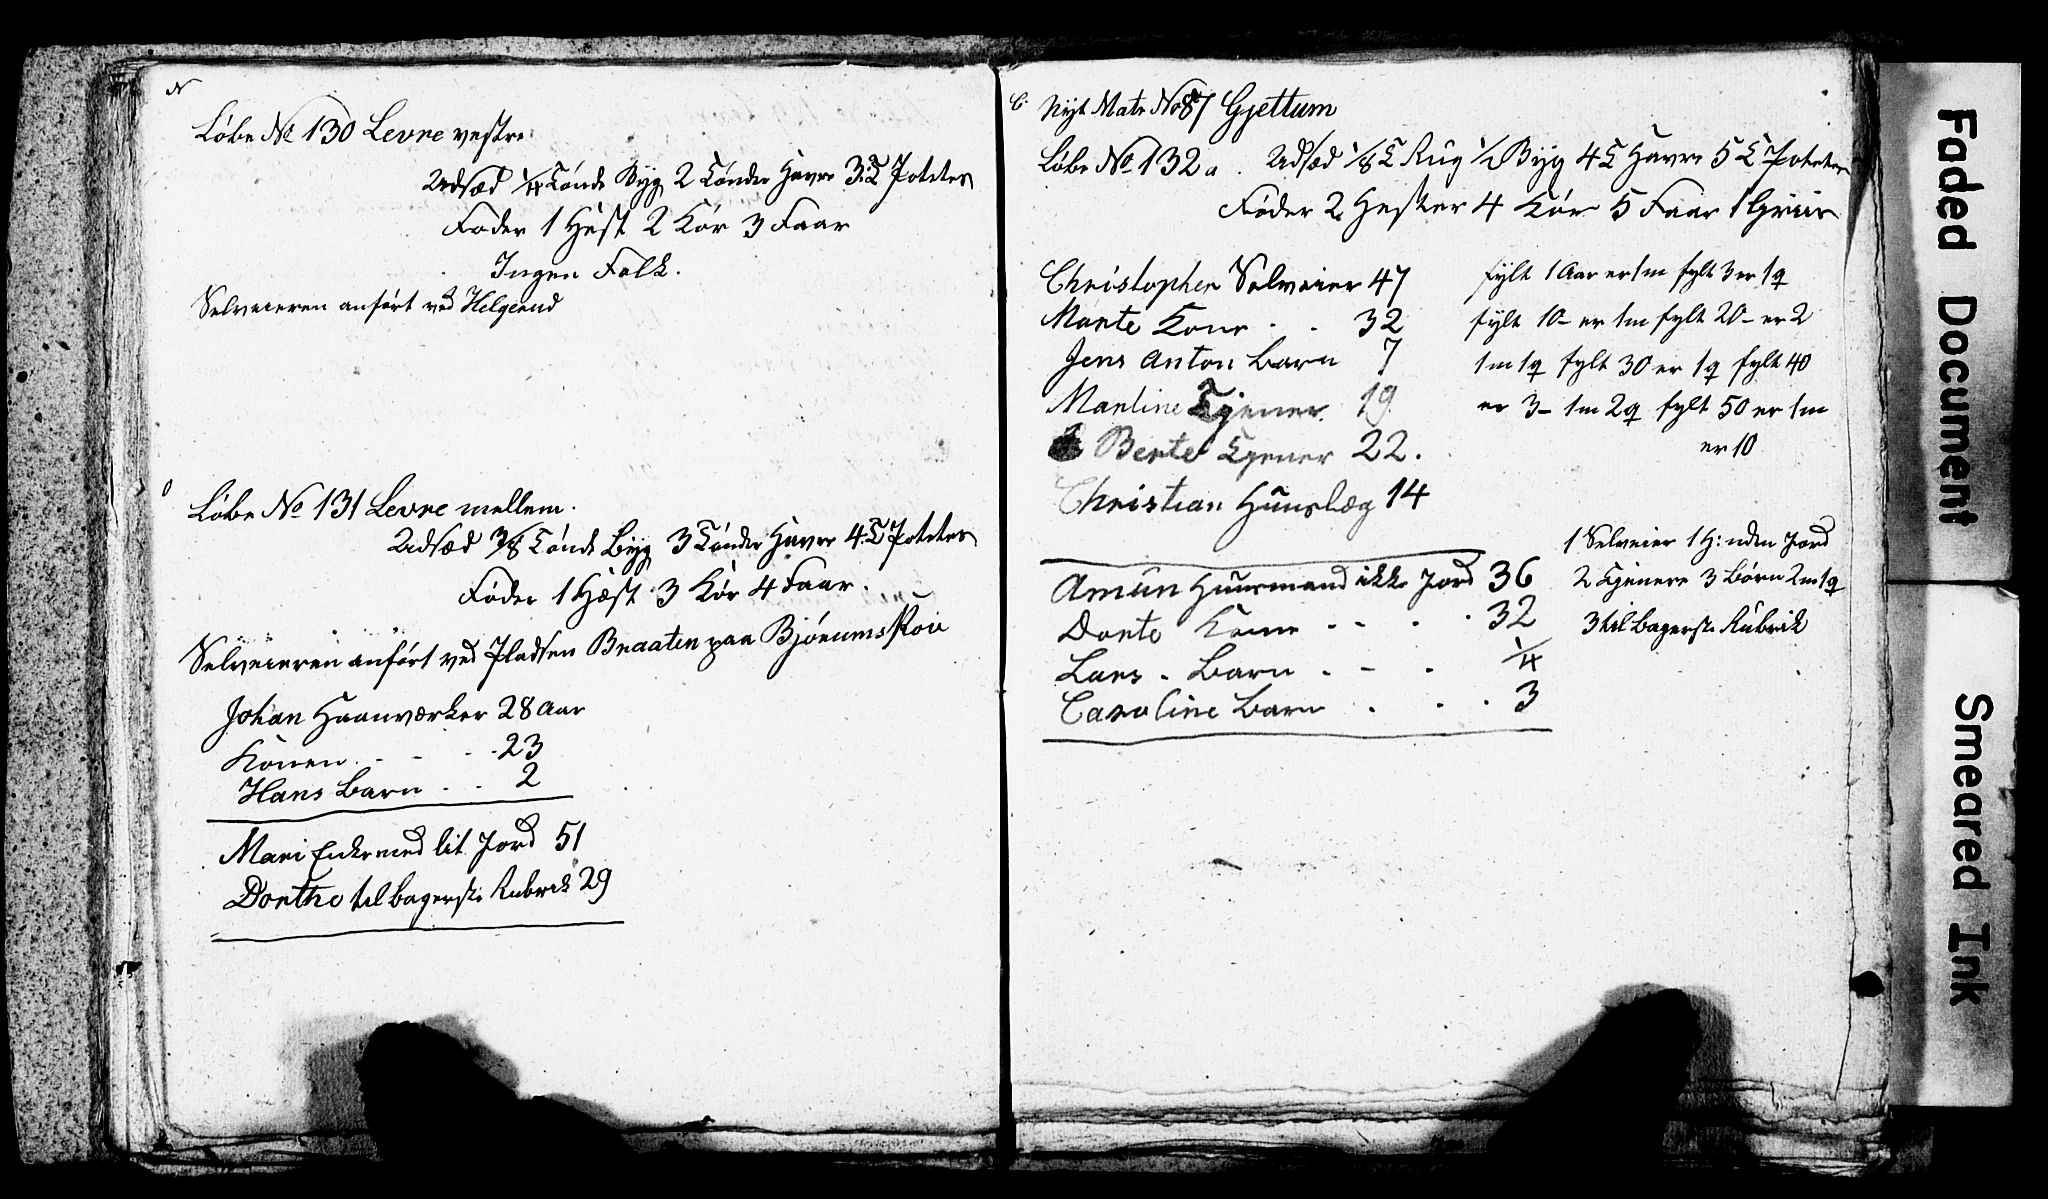 N
Løbe No 130 Levre vestre
Udsæd 1/4 Tønde Byg 2 Tønder Havre 3 T Poteter
Føder 1 Hest 2 Kør 3 Faar
Ingen Folk.
Selveieren anført ved Helgerud
O
Løbe No 131 Levre mellem.
Udsæd 3/8 Tønde Byg 3 Tønder Havre 4 T Poteter
Føder 1 Hæst 3 Kør 4 Faar.
Selveieren anført ved Pladsen Braaten paa Bjørumskov
Johan Haanværker 28 Aar
Konen . . . 23
Hans Barn . . 2
Mari Enke med lit Jord 51
Dorthe til bagerste Rubrik 29
Nyt Matr No 87 Gjettum
Løbe No 132 a. Udsæd 1/8 T Rug 1/2 Byg 4 T Havre 5 T Poteter
Føder 2 Hester 4 Kør 5 Faar 1 Griis
Christopher Selveier 47
Marte Kone . . 32
Jens Anton Barn 7
Martine Tjener. 19
Berte Tjener 22.
Christian Huuslæg 14
Amun Huusmand ikke Jord 36
Dorte Kone - - . . 32
Lars . Barn . - . 1/4
Caroline Barn . . . 3
fylt 1 Aar er 1 m fylt 3 er 1 q
fylt 10 - er 1 m fylt 20 - er 2
1 m 1 q fylt 30 er 1 q fylt 40
er 3 - 1 m 2 q fylt 50 er 1 m
er 10
1 Selveier 1 H: uden Jord
2 Tjenere 3 Børn 2 m 1 q
3 til bagerste Rubrik
Faded Document
Smeared Ink